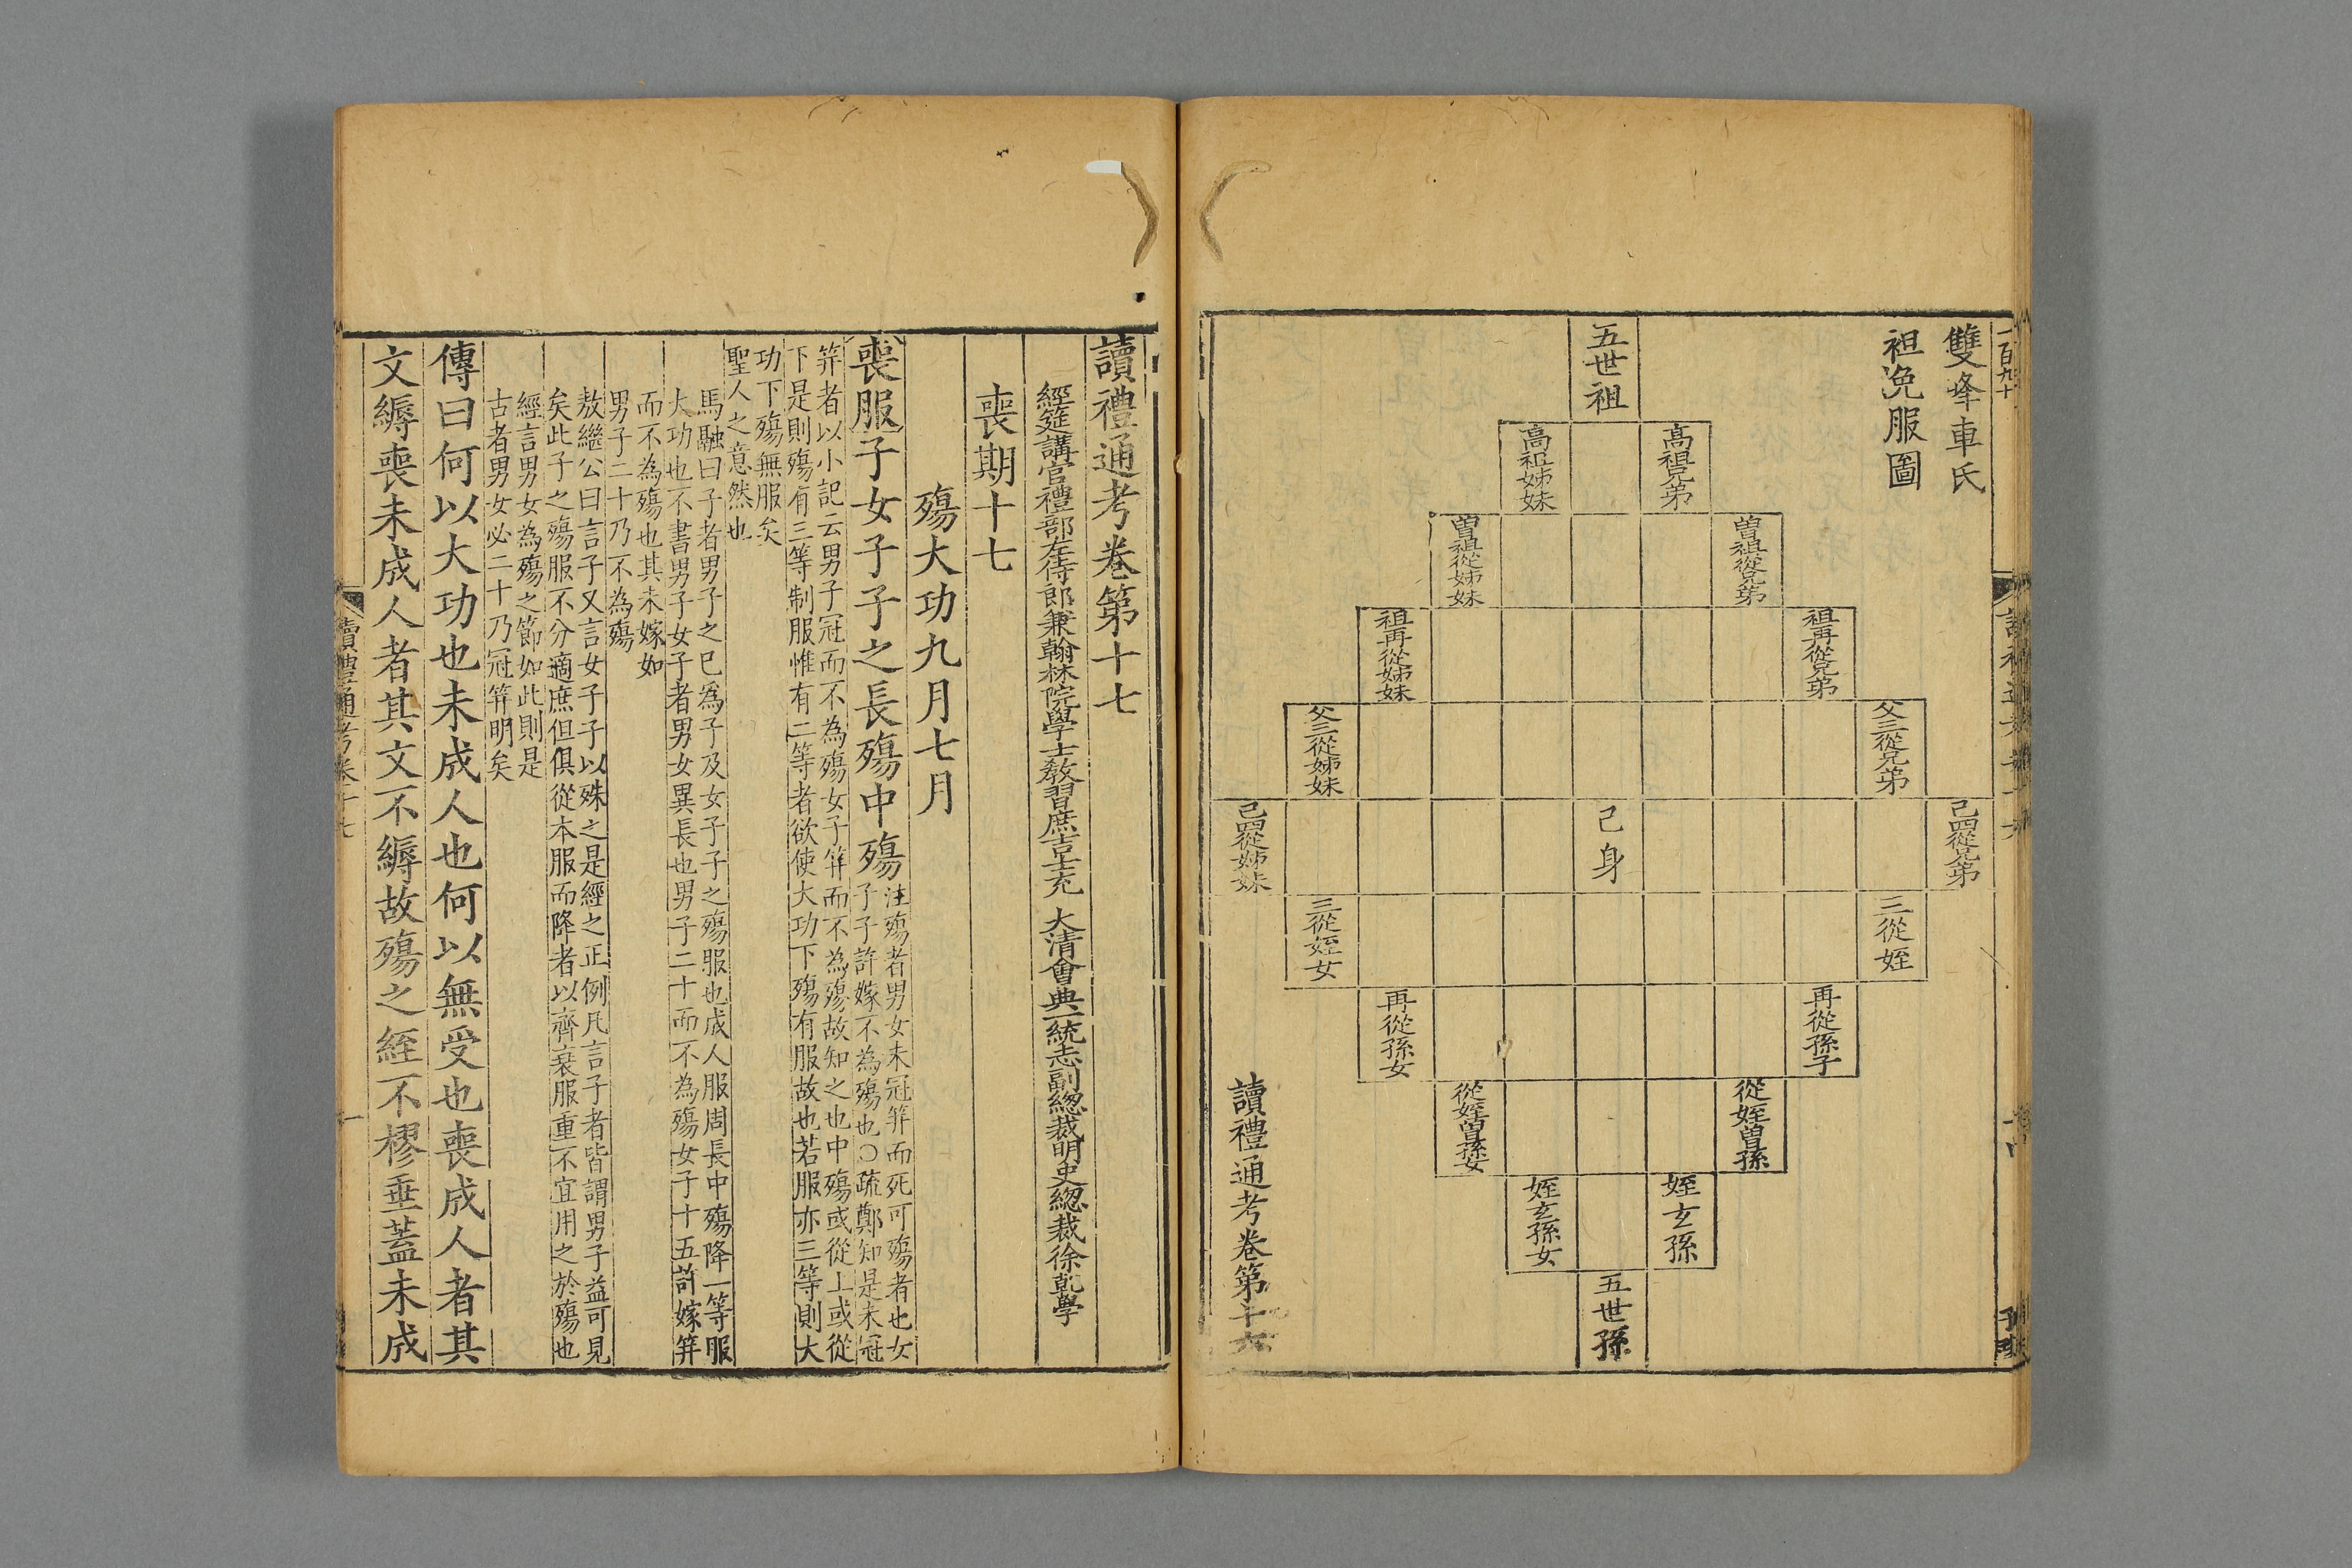 雙峰車氏
袒免服圖
五世祖
高祖兄弟
高祖姊妹
曾祖從兄弟
曾祖從姊妹
祖再從兄弟
祖再從姊妹
父三從兄弟
父三從姊妹
己四從兄弟
己身
己四從姊妹
三從姪
三從姪女
再從孫子
再從孫女
從姪曾孫
從姪曾孫女
姪玄孫
姪玄孫女
五世孫
讀禮通考卷第十六
讀禮通考卷第十七
經筵講官禮部左侍郎兼翰林院學士教習庶吉士充 大清會典一統志副總裁明史總裁徐乾學
喪期十七
殤大功九月七月
喪服子女子子之長殤中殤
注殤者男女未冠笄而死可殤者也女
子子許嫁不為殤也○疏鄭知是未冠
笄者以小記云男子冠而不為殤女子笄而不為殤故知之也中殤或從上或從
下是則殤有三等制服惟有二等者欲使大功下殤有服故也若服亦三等則大
功下殤無服矣
聖人之意然也
馬融曰子者男子之已爲子及女子子之殤服也成人服周長中殤降一等服
大功也不書男子女子者男女異長也男子二十而不為殤女子十五許嫁笄
而不為殤也其未嫁如
男子二十乃不為殤
敖繼公曰言子又言女子子以殊之是經之正例凡言子者皆謂男子益可見
矣此子之殤服不分適庶但俱從本服而降者以齊衰服重不宜用之於殤也
經言男女為殤之節如此則是
古者男女必二十乃冠笄明矣
傳曰何以大功也未成人也何以無受也喪成人者其
文縟喪未成人者其文不縟故殤之絰不樛垂蓋未成
讀禮通考卷十七
一